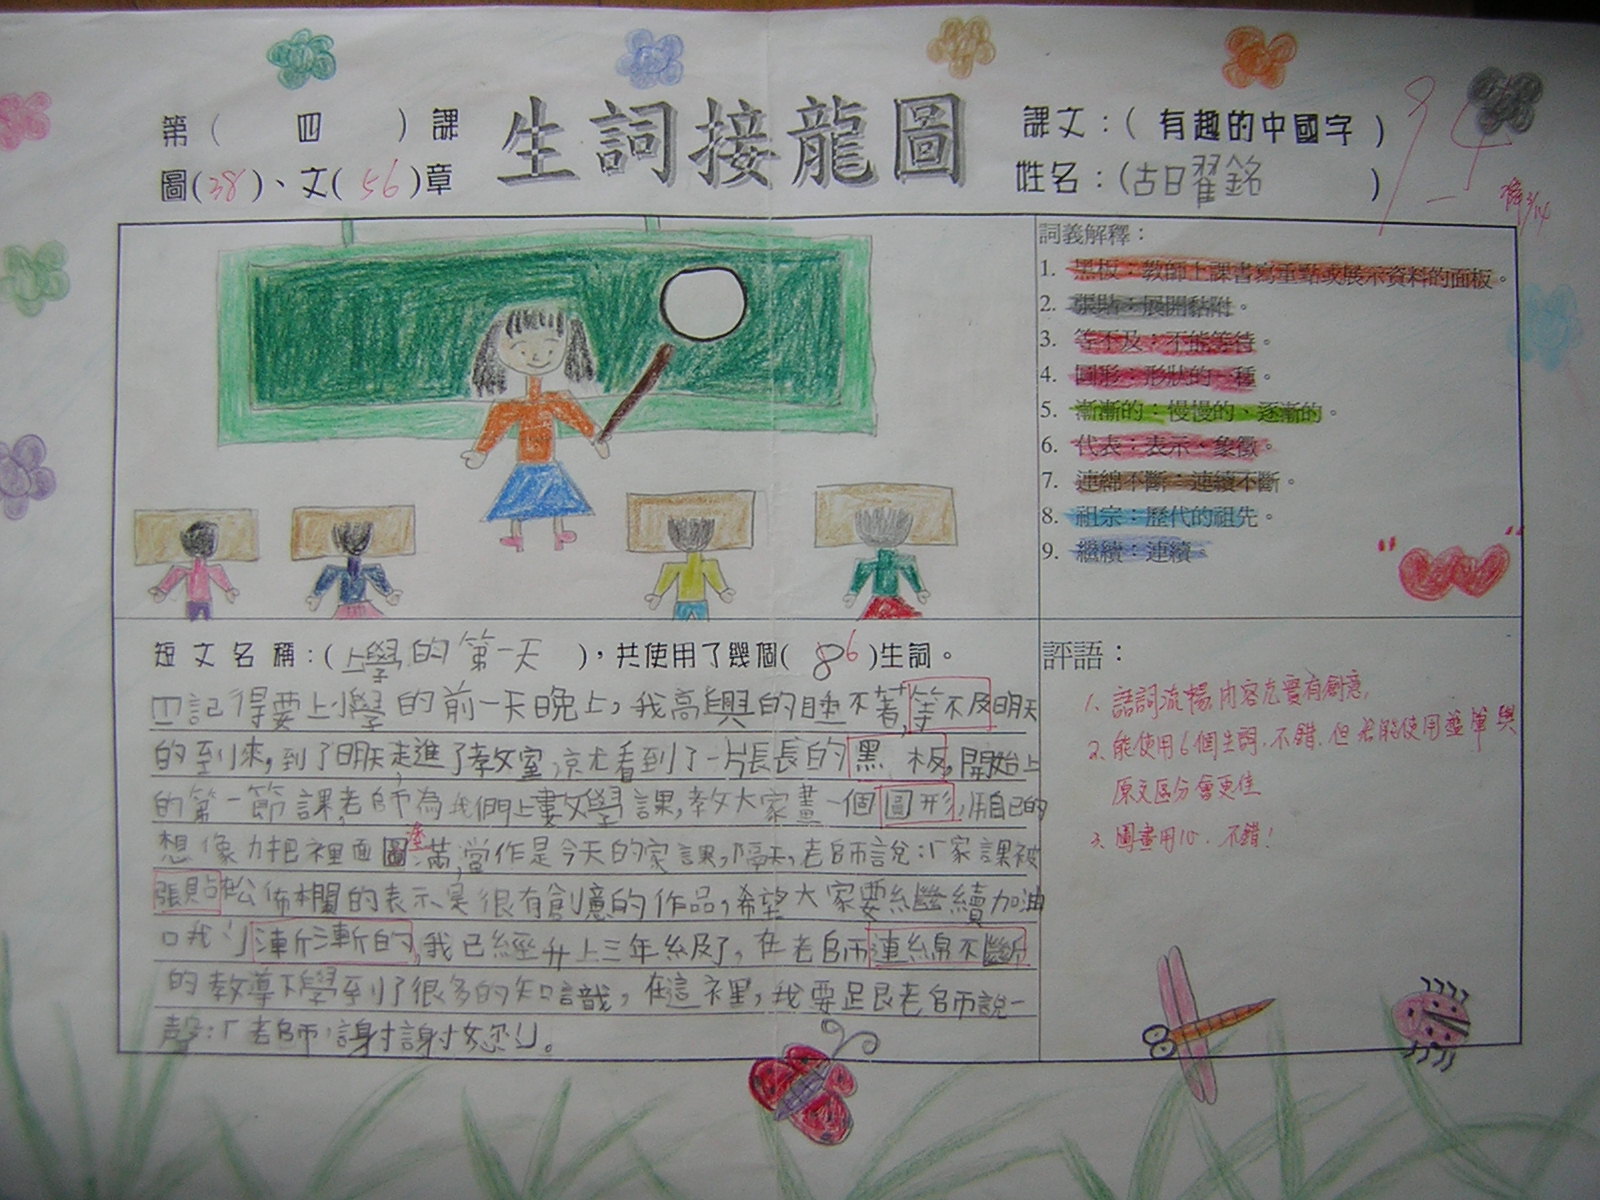 第( 四 )課
圖(38)、文(56)章
生詞接龍圖
課文：( 有趣的中國字 )
姓名：(古曜銘 )
94
詞義解釋：
1. 黑板：教師上課書寫重點或展示資料的面板。
2. 張貼：展開黏附。
3. 等不及：不能等待。
4. 圖形：形狀的一種。
5. 漸漸的：慢慢的、逐漸的。
6. 代表：表示、象徵。
7. 連綿不斷：連續不斷。
8. 祖宗：歷代的祖先。
9. 繼續：連續。
短文名稱：( 上學的第一天 )，共使用了幾個( 8 6 )生詞。
記得要上小學的前一天晚上，我高興的睡不著，等不及明天
的到來，到了明天，走進了教室，就看到了一片長長的黑板，開始上
的第一節課，老師為我們上數學課，教大家畫一個圖形，用自己的
想像力把裡面圖塗滿，當作是今天的家課，隔天，老師說：「家課被
張貼松佈欄的表示是很有創意的作品，希望大家要繼續加油
漸漸的，我已經升上三年級了，在老師連綿不斷
的教導下學到了很多的知識，在這裡，我要跟老師說一
聲：「老師，謝謝您！」。
評語：
1. 語詞流暢，內容充實有創意。
2. 能使用6個生詞，不錯，但若能使用螢光筆與
原文區分會更佳
3. 圖畫用心，不錯！